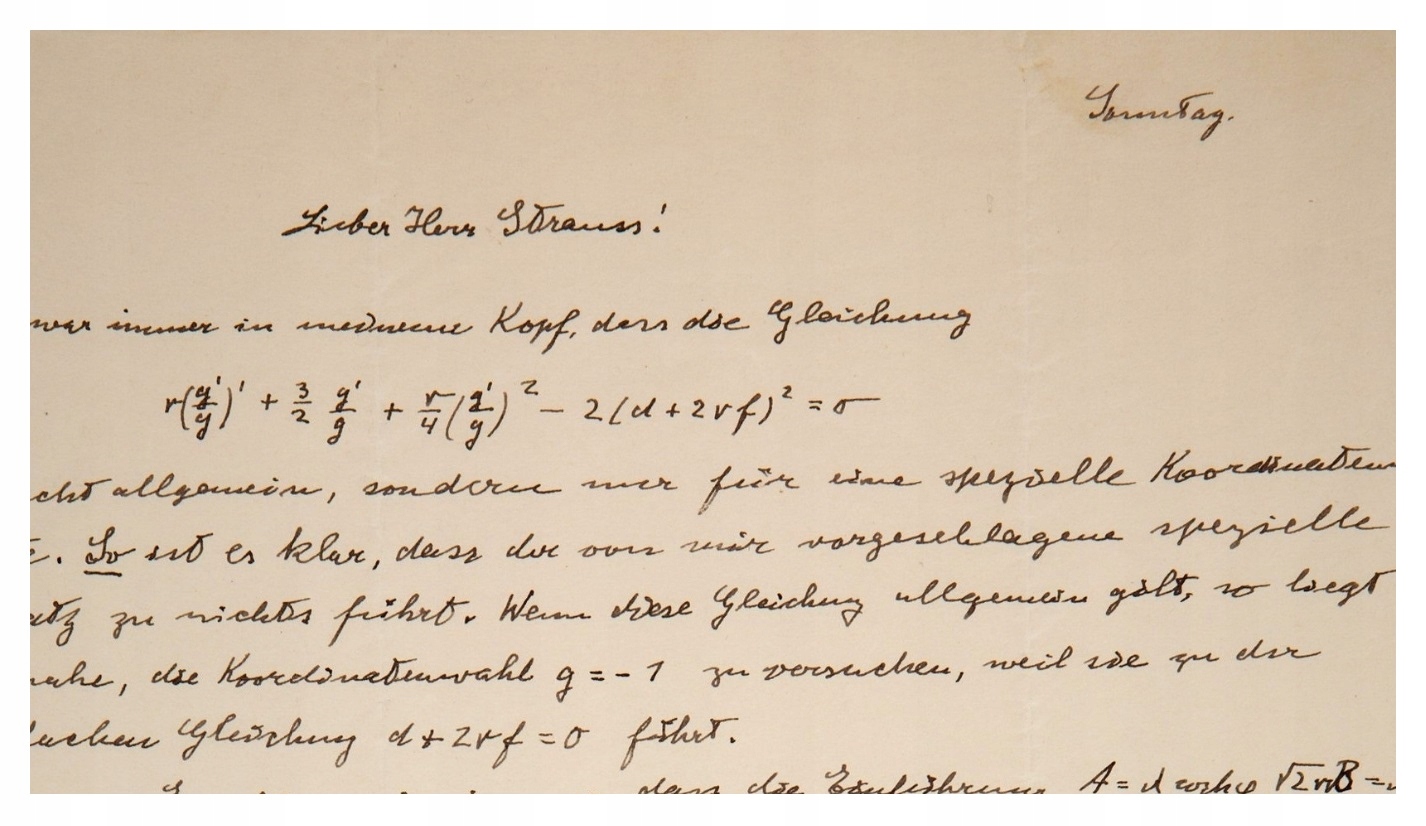 Sonntag.
Lieber Herr Strauss!
war immer in meinem Kopf, dass die Gleichung
r(g'/g)' + 3/2 g'/g + r/4 (g'/g)² − 2(d + 2rf)² = 0
cht allgemein, sondern nur für eine spezielle Koordinaten
. So ist es klar, dass der von mir vorgeschlagene spezielle
atz zu nichts führt. Wenn diese Gleichung allgemein gilt, so liegt
nahe, die Koordinatenwahl g = −1 zu versuchen, weil sie zu der
fachen Gleichung d + 2rf = 0 führt.
dass die Einführung A =